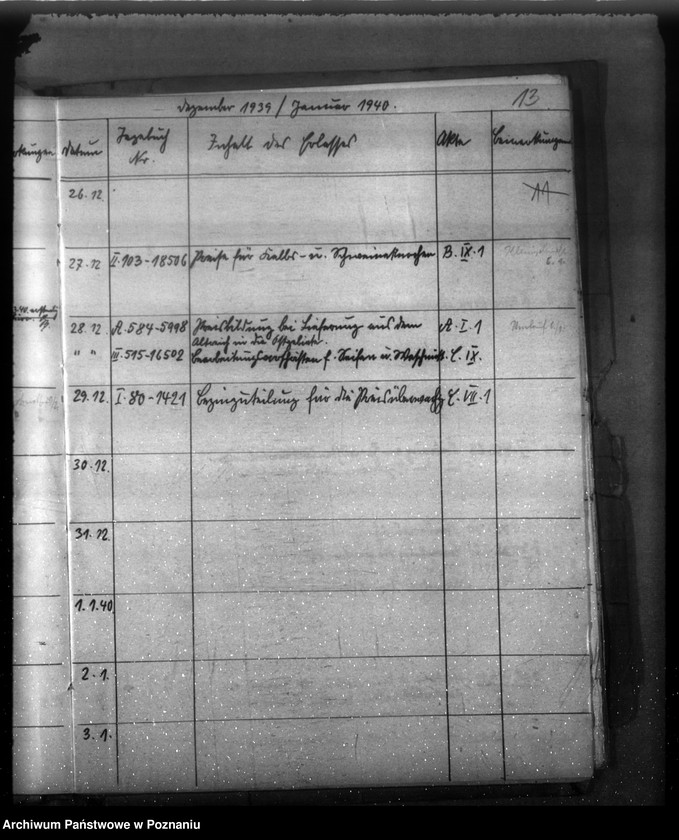 Dezember 1939 / Januar 1940.
13
Datum Tagebuch Nr. Inhalt des Erlasses Akte Bemerkungen
26.12.
27.12 II.103-18506 Preise für Kalbs- u. Schweineknochen B.IX.1
28.12. A.584-5998 Preisbildung bei Lieferung aus dem A.I.1
Altreich in die Ostgebiete.
" " III.515-16502 f. Seifen u. Waschmitt. C.IX.
29.12. I.80-1421 Benzinzuteilung für die Preisüberwachg. C.VII.1
30.12.
31.12.
1.1.40
2.1.
3.1.
Archiwum Państwowe w Poznaniu